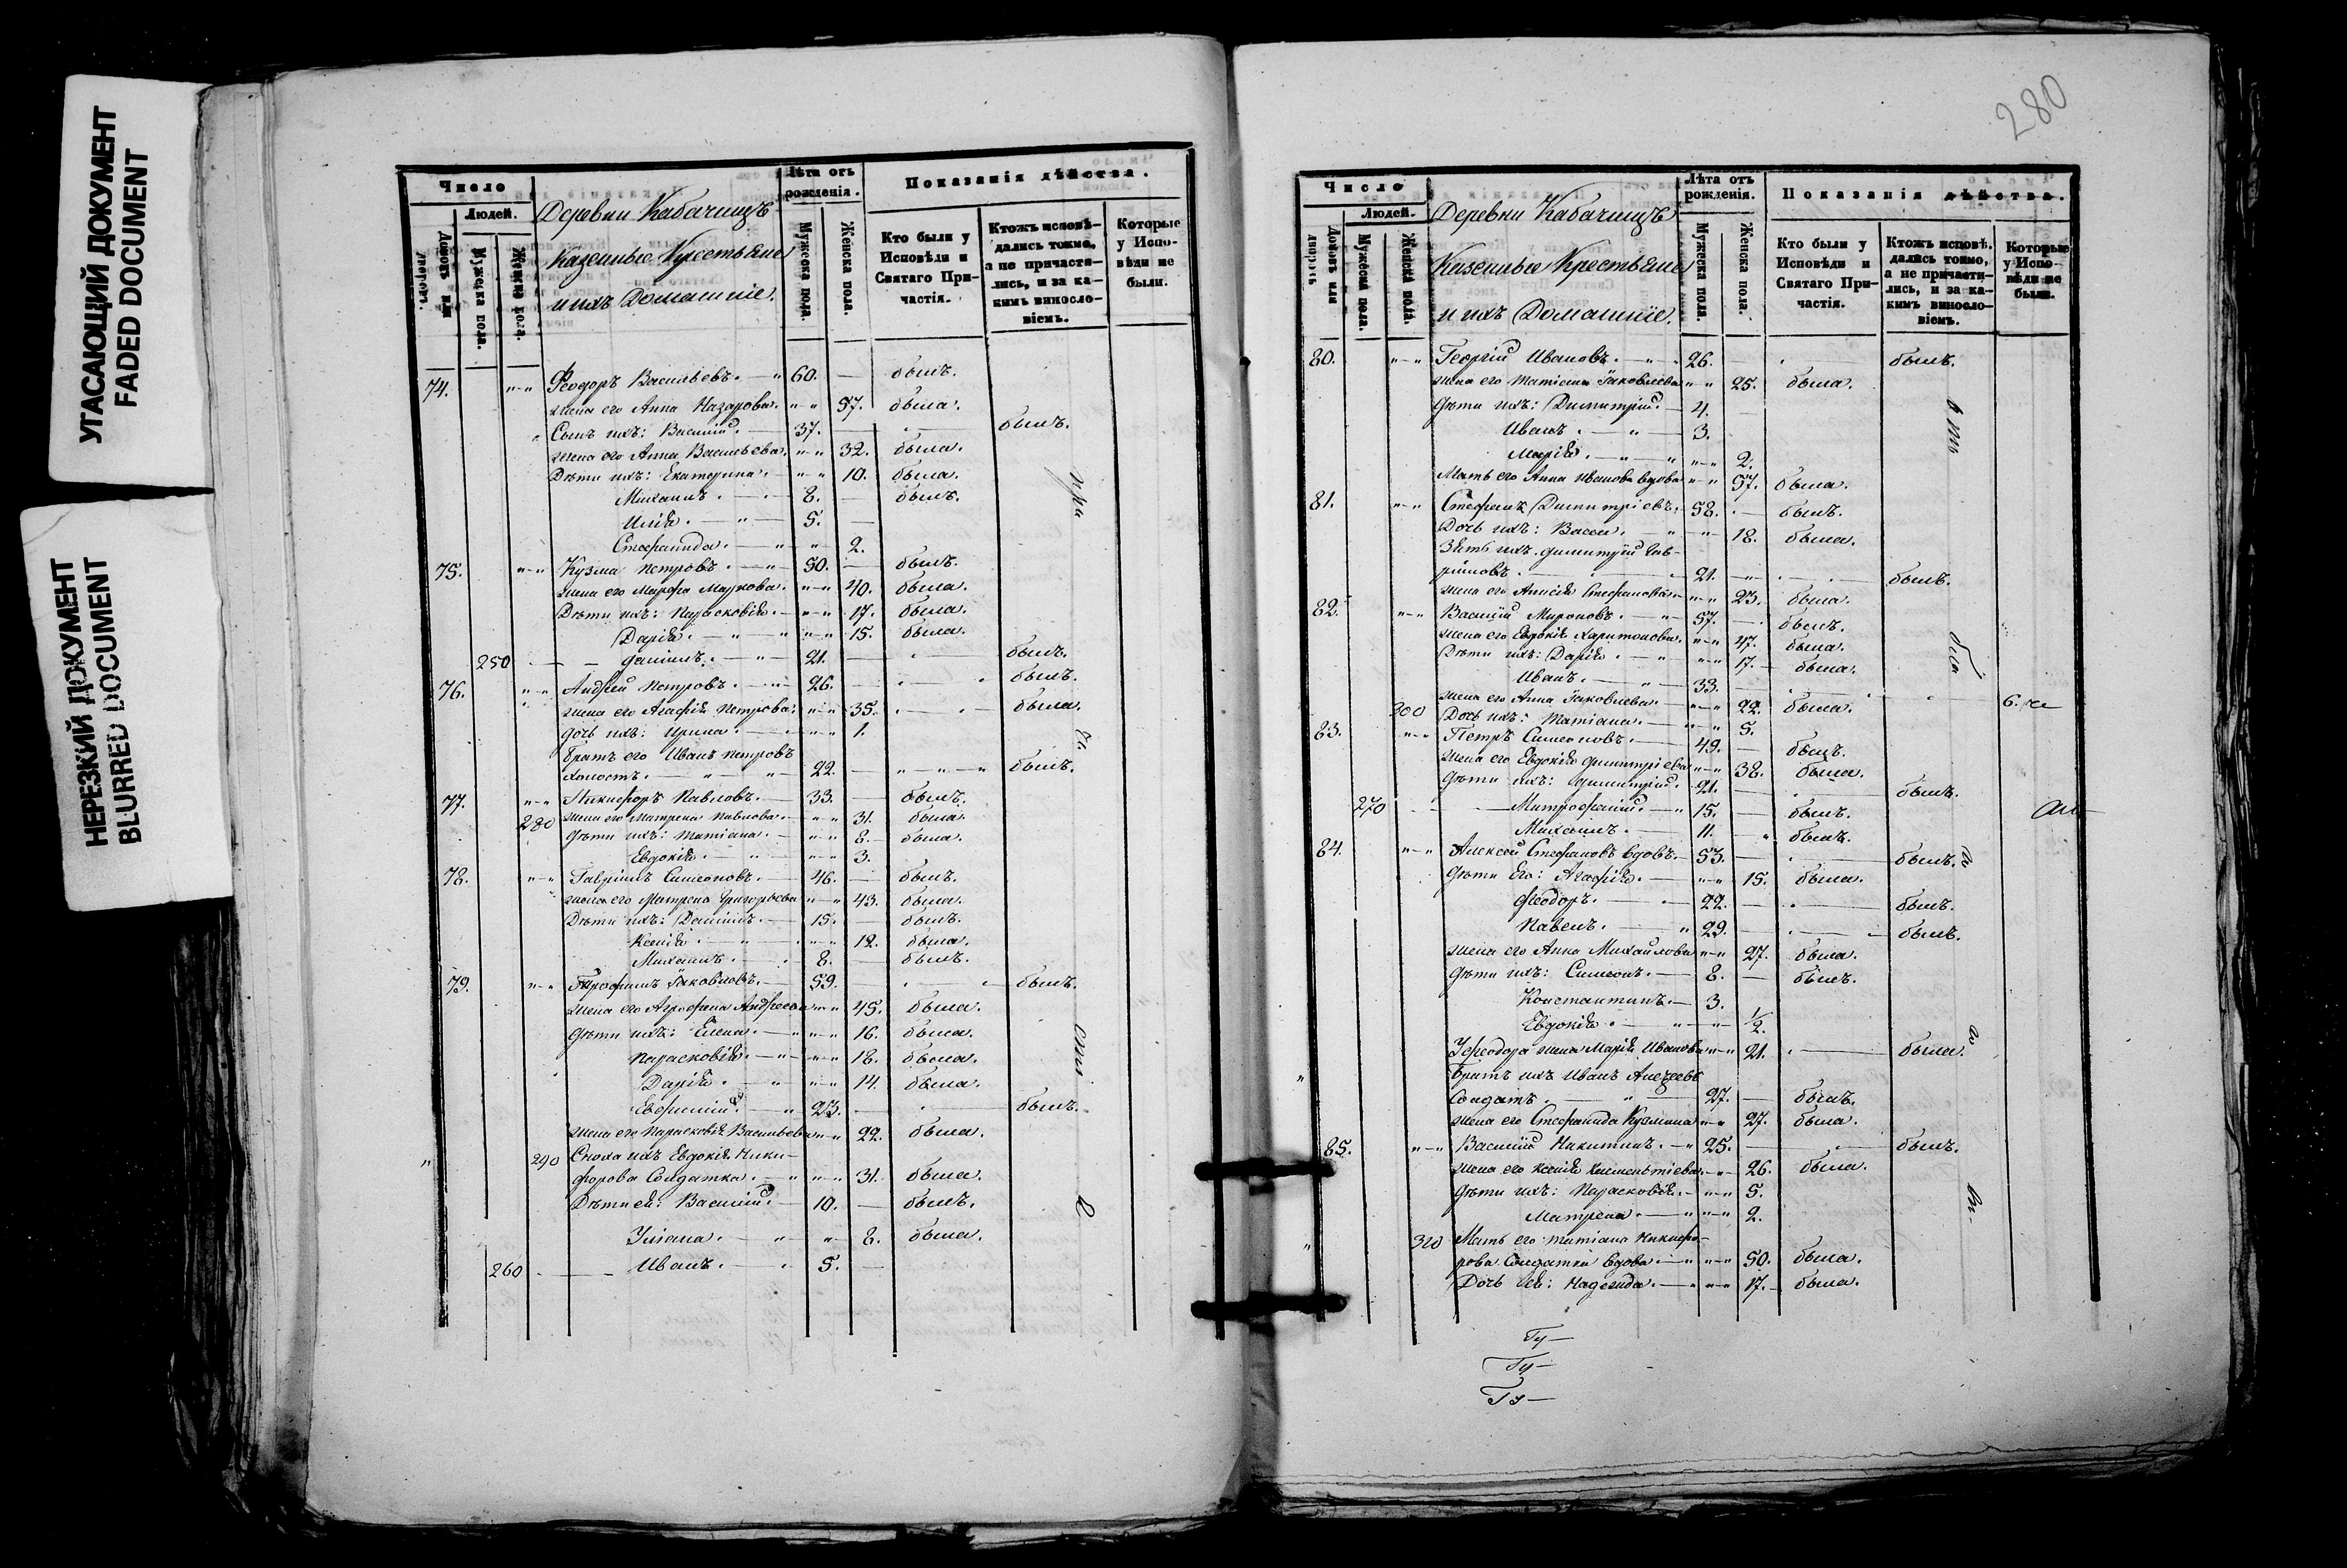 УГАСАЮЩИЙ ДОКУМЕНТ
FADED DOCUMENT
НЕРЕЗКИЙ ДОКУМЕНТ
BLURRED DOCUMENT
Число
Людей.
Домовъ или дворовъ.
Мужеска пола.
Женска пола.
Деревни Кабачищъ
Казенные Крестьяне
и ихъ Домашніе.
Лѣта отъ рожденія.
Мужеска пола.
Женска пола.
Показанія дѣйства.
Кто были у Исповѣди и Святаго Причастія.
Ктожъ исповѣдались токмо, а не причастились, и за какимъ винословіемъ.
Которые у Исповѣди не были.
74. Ѳеодоръ Васильевъ. 60. — былъ.
жена его Анна Назарова. 57. была.
Сынъ ихъ: Василій. 37. — былъ.
жена его Анна Васильева. 32. была.
Дѣти ихъ: Екатерина. 10. была.
Михаилъ. 8. — былъ.
Илія. 5. —
Стефанида. 2.
75. Кузма Петровъ. 50. — былъ.
жена его Марфа Маркова. 40. была.
Дѣти ихъ: Парасковія. 17. была.
Дарія. 15. была.
250 Даніилъ. 21. — былъ.
76. Андрей Петровъ. 26. — былъ.
жена его Агафія Петрова. 35. была.
дочь ихъ: Ирина. 1.
братъ его Иванъ Петровъ
холостъ. 22. — былъ.
77. Никифоръ Павловъ. 33. — былъ.
280 жена его Матрена Павлова. 31. была.
Дѣти ихъ: Татіана. 8. была.
Евдокія. 3.
78. Гавріилъ Симеоновъ. 46. — былъ.
жена его Матрена Григорьева 43. была.
Дѣти ихъ: Даніилъ. 15. — былъ.
Ксенія. 12. была.
Михаилъ. 8. — былъ.
79. Трофимъ Іаковловъ. 59. былъ.
жена его Агрофена Андреева 45. была.
Дѣти ихъ: Елена. 16. была.
Парасковія. 18. была.
Дарія. 14. была.
Евфимій. 23. — былъ.
жена его Параскевія Васильева 22. была.
290 Сноха ихъ Евдокія Ники-
форова Солдатка. 31. была.
Дѣти ея: Василій. 10. — былъ.
Уліана. 8. была.
260 Иванъ. 5. —
280
Число
Людей.
Домовъ или дворовъ
Мужеска пола.
Женска пола.
Деревни Кабачищъ
Казенные Крестьяне
и ихъ Домашніе.
Лѣта отъ рожденія.
Мужеска пола.
Женска пола.
Показанія дѣйства.
Кто были у Исповѣди и Святаго Причастія.
Ктожъ исповѣдались токмо, а не причастились, и за какимъ винословіемъ.
Которые у Исповѣди не были.
80. Георгій Ивановъ. 26. былъ.
жена его Татіана Іаковлева 25. была.
Дѣти ихъ: Димитрій. 4. —
Иванъ. 3.
Марія. 2.
Мать его Анна Иванова вдова 57. была.
81. Стефанъ Димитріевъ. 58. — былъ.
Дочь ихъ: Васса. 18. была.
Зять ихъ Димитрій Гав-
риловъ. 21. былъ.
жена его Анисія Стефанова. 23. была.
82. Василій Мироновъ. 57. — былъ.
жена его Евдокія Харитонова. 47. была.
Дѣти ихъ: Дарія. 17. была.
Иванъ. 33.
жена его Анна Іаковлева. 22. была.
300 Дочь ихъ: Татіана. 5.
83. Петръ Симеоновъ. 49. — былъ.
жена его Евдокія Димитріева 38. была.
Дѣти ихъ: Димитрій. 21. — былъ.
270 Митрофаній. 15. — былъ.
Михаилъ. 11. — былъ.
84. Алексей Стефановъ вдовъ. 53. — былъ.
Дѣти Его: Агафія. 15. была.
Ѳеодоръ. 22. — былъ.
Павелъ. 29. — былъ.
жена его Анна Михайлова 27. была.
Дѣти ихъ: Симеонъ. 8. — былъ.
Константинъ. 3.
Евдокія. 1/2.
У Ѳеодора жена Марія Иванова 21. была.
Братъ ихъ Иванъ Алексеевъ
Солдатъ. 27. — былъ.
жена его Стефанида Кузмина 27. была.
85. Василій Никитинъ. 25. — былъ.
жена его Ксенія Климентіева 26. была.
Дѣти ихъ: Параскевія. 5.
Матрена. 2.
310 Мать его Татіана Никифо-
рова Солдатка вдова. 50. была.
Дочь Ея: Надежда. 17. была.